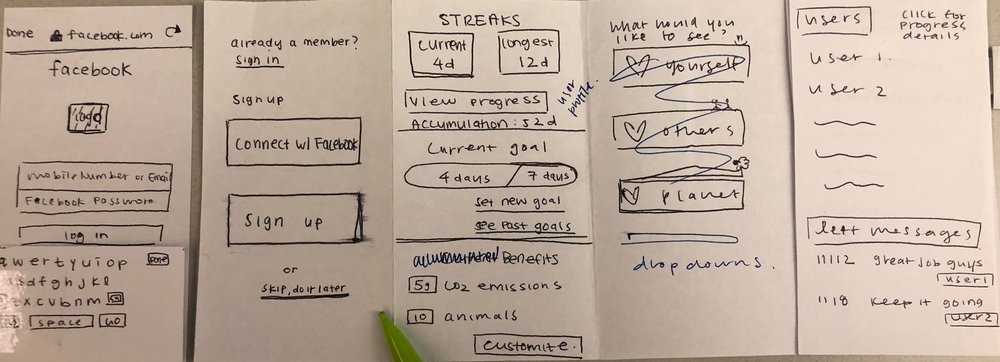 Done facebook.com
facebook
logo
Mobile Number or Email
Facebook Password
log in
qwertyuiop done
asdfghjkl
zxcvbnm
space GO
already a member?
Sign in
Sign up
Connect w/ Facebook
Sign up
or
skip, do it later
STREAKS
current
4d
longest
12d
View progress
user profile
Accumulation: 52d
Current goal
4 days / 7 days
set new goal
see past goals
accumulated Benefits
59 CO2 emissions
10 animals
customize.
What would you
like to see?
yourself
others
planet
dropdowns.
users
click for
progress
details
user 1.
user 2
left messages
11/12 great job guys
user1
11/18 keep it going
user2